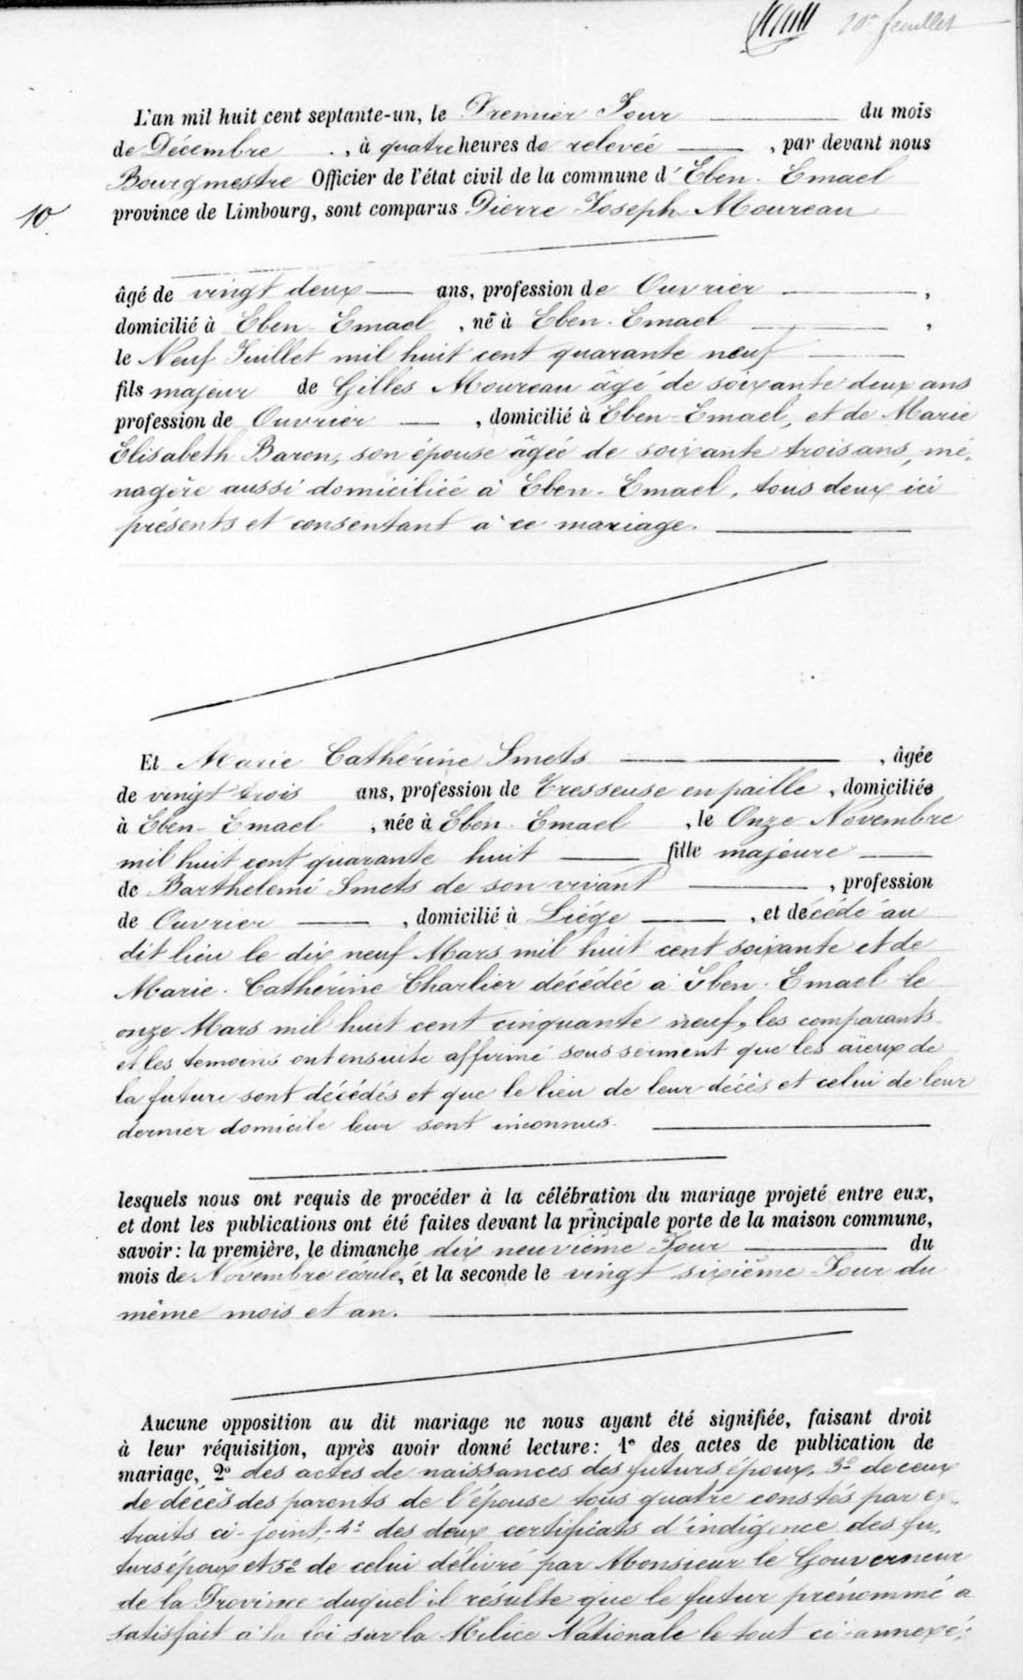 20e feuillet
L'an mil huit cent septante-un, le Premier Jour du mois
de Décembre , à quatre heures de relevée , par devant nous
Bourgmestre Officier de l'état civil de la commune d'Eben-Emael
10
province de Limbourg, sont comparus Pierre Joseph Moureau
âgé de vingt deux ans, profession de Ouvrier ,
domicilié à Eben-Emael , né à Eben-Emael ,
le Neuf Juillet mil huit cent quarante neuf
fils majeur de Gilles Moureau âgé de soixante deux ans
profession de Ouvrier , domicilié à Eben-Emael, et de Marie
Elisabeth Baron, son épouse âgée de soixante trois ans, mé-
nagère aussi domiciliée à Eben-Emael, tous deux ici
présents et consentant à ce mariage.
Et Marie Cathérine Smets , âgée
de vingt trois ans, profession de Tresseuse en paille , domiciliée
à Eben-Emael , née à Eben-Emael , le Onze Novembre
mil huit cent quarante huit fille majeure
de Barthelemi Smets de son vivant , profession
de Ouvrier , domicilié à Liége , et décédé au
dit lieu le dix neuf Mars mil huit cent soixante et de
Marie-Cathérine Charlier décédée à Eben-Emael le
onze Mars mil huit cent cinquante neuf, les comparants
et les temoins ont ensuite affirmé sous serment que les aïeux de
la future sont décédés et que le lieu de leur décès et celui de leur
dernier domicile leur sont inconnus.
lesquels nous ont requis de procéder à la célébration du mariage projeté entre eux,
et dont les publications ont été faites devant la principale porte de la maison commune,
savoir: la première, le dimanche dix neuvième Jour du
mois de Novembre écoulé, et la seconde le vingt sixième Jour du
même mois et an.
Aucune opposition au dit mariage ne nous ayant été signifiée, faisant droit
à leur réquisition, après avoir donné lecture: 1° des actes de publication de
mariage, 2° des actes de naissances des futurs époux, 3° de ceux
de décès des parents de l'épouse tous quatre constés par ex-
traits ci-joint, 4° des deux certificats d'indigence des fu-
turs époux et 5° de celui délivré par Monsieur le Gouverneur
de la Province duquel il résulte que le futur prénommé a
satisfait à la loi sur la Milice Nationale le tout ci-annexé;